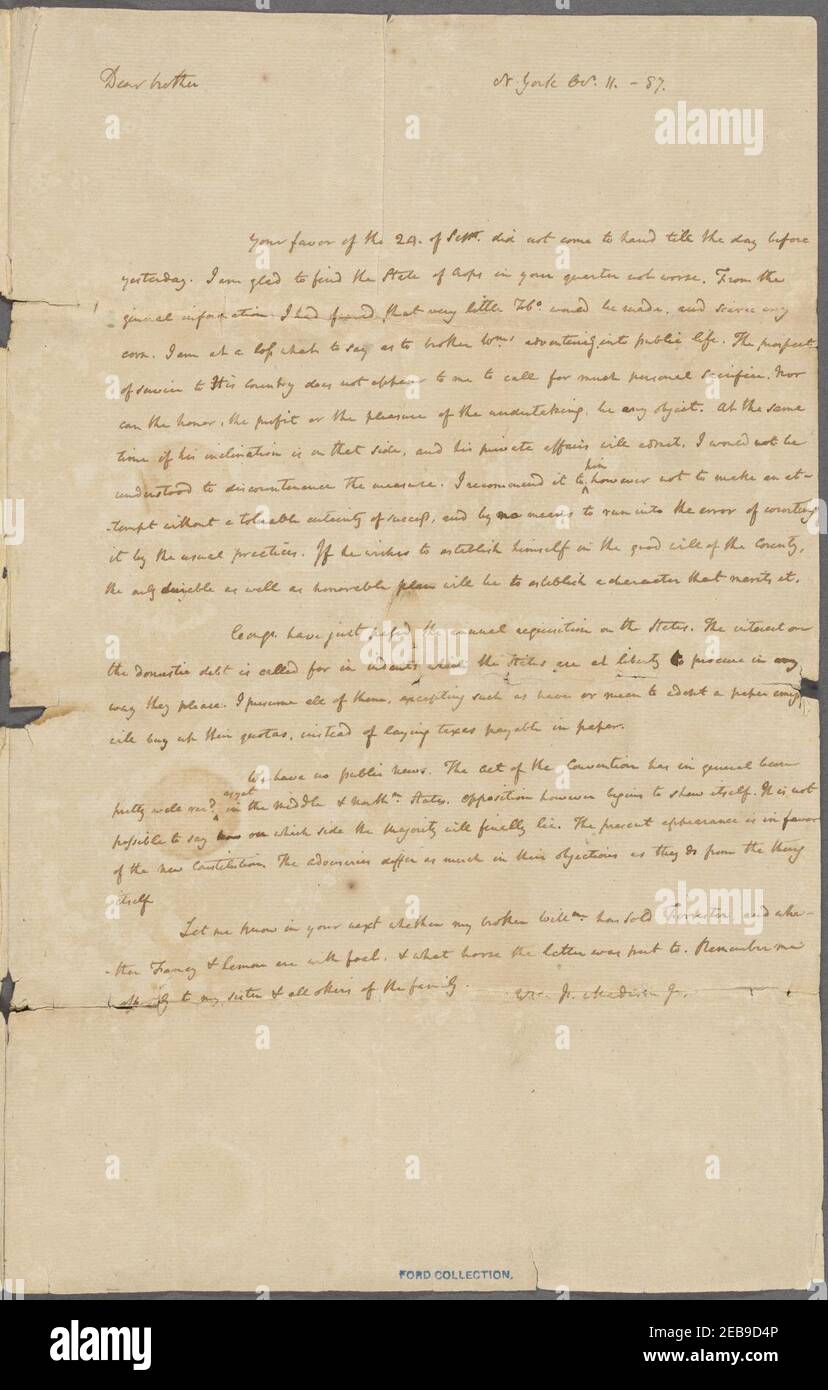 Dear brother
N. York Oct. 11. - 87.
Your favor of the 24. of Sepr. did not come to hand till the day before
yesterday. I am glad to find the State of Crops in your quarter not worse. From the
general information I had feared that very little Tobo. would be made, and scarce any
corn. I am at a loss what to say as to brother Wms. adventuring into public life. The prospect
of service to His country does not appear to me to call for much personal sacrifice. Nor
can the honor, the profit or the pleasure of the undertaking, be any object. At the same
time if his inclination is on that side, and his private affairs will admit, I would not be
understood to discountenance the measure. I recommend it to him however not to make an at-
-tempt without a tolerable certainty of success, and by no means to run into the error of courting
it by the usual practices. If he wishes to establish himself in the good will of the County,
the only durable as well as honorable plan will be to establish a character that merits it.
Congs. have just passed the annual requisition on the States. The interest on
the domestic debt is called for in indents which the States are at liberty to procure in any
way they please. I presume all of them, excepting such as have or mean to adopt a paper emisn,
will buy up their quotas, instead of laying taxes payable in paper.
We have no public news. The Act of the Convention has in general been
pretty well recd. as yet in the middle & northn. States. Opposition however begins to shew itself. It is not
possible to say on which side the Majority will finally lie. The present appearance is in favor
of the new Constitution. The adversaries differ as much in their objections as they do from the thing
itself
Let me know in your next whether my brother Willm. has sold and whe-
-ther Fancy & Lemon are with foal, & what horse the latter was put to. Remember me
affecty to my sister & all others of the family.
Js. Madison Jr.
FORD COLLECTION.
alamy
alamy
Image ID: 2EB9D4P
www.alamy.com